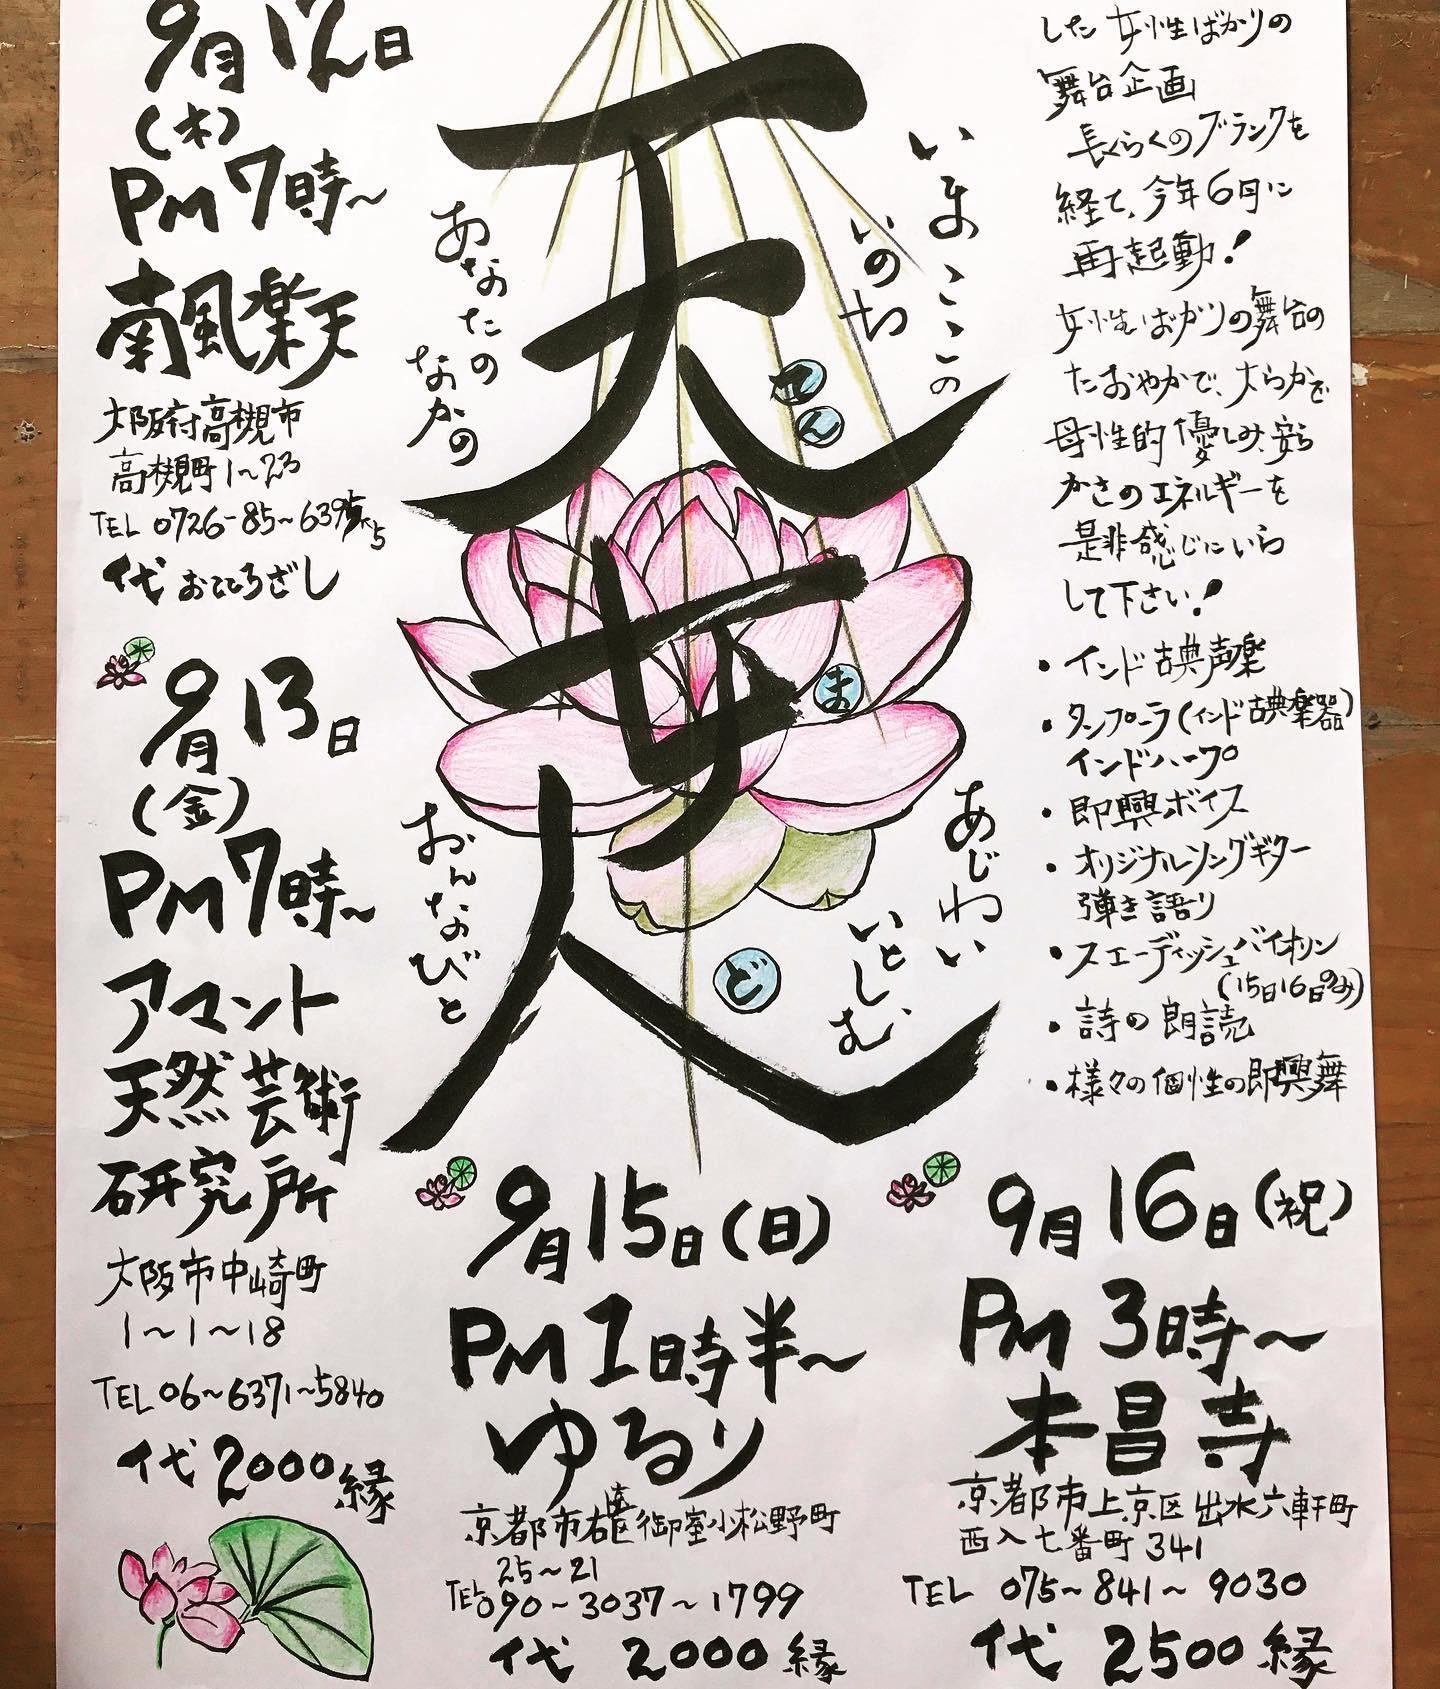 9月12日
(木)
PM7時~
南風楽天
大阪府高槻市
高槻町1~23
TEL 0726-85~6395
代 おこころざし
9月13日
(金)
PM7時~
アマント
天然芸術
研究所
大阪市中崎町
1~1~18
TEL 06~6371~5840
代2000縁
天女人
てん
ま
ど
いまここの
いのち
あなたの
なかの
おんなびと
あじわい
いとしむ
した女性ばかりの
舞台企画
長らくのブランクを
経て、今年6月に
再起動!
女性ばかりの舞台の
たおやかで、大らかで
母性的優しみ、安ら
かさのエネルギーを
是非感じにいら
して下さい!
・インド古典声楽
・タンプーラ(インド古典楽器)
インドハープ
・即興ボイス
・オリジナルソングギター
弾き語り
・スエーディッシュバイオリン
(15日16日のみ)
・詩の朗読
・様々の個性の即興舞
9月15日(日)
PM1時半~
ゆるり
京都市右京区御室小松野町
25~21
TEL 090~3037~1799
代 2000縁
9月16日(祝)
PM3時~
本昌寺
京都市上京区出水六軒町
西入七番町341
TEL 075~841~9030
代 2500縁